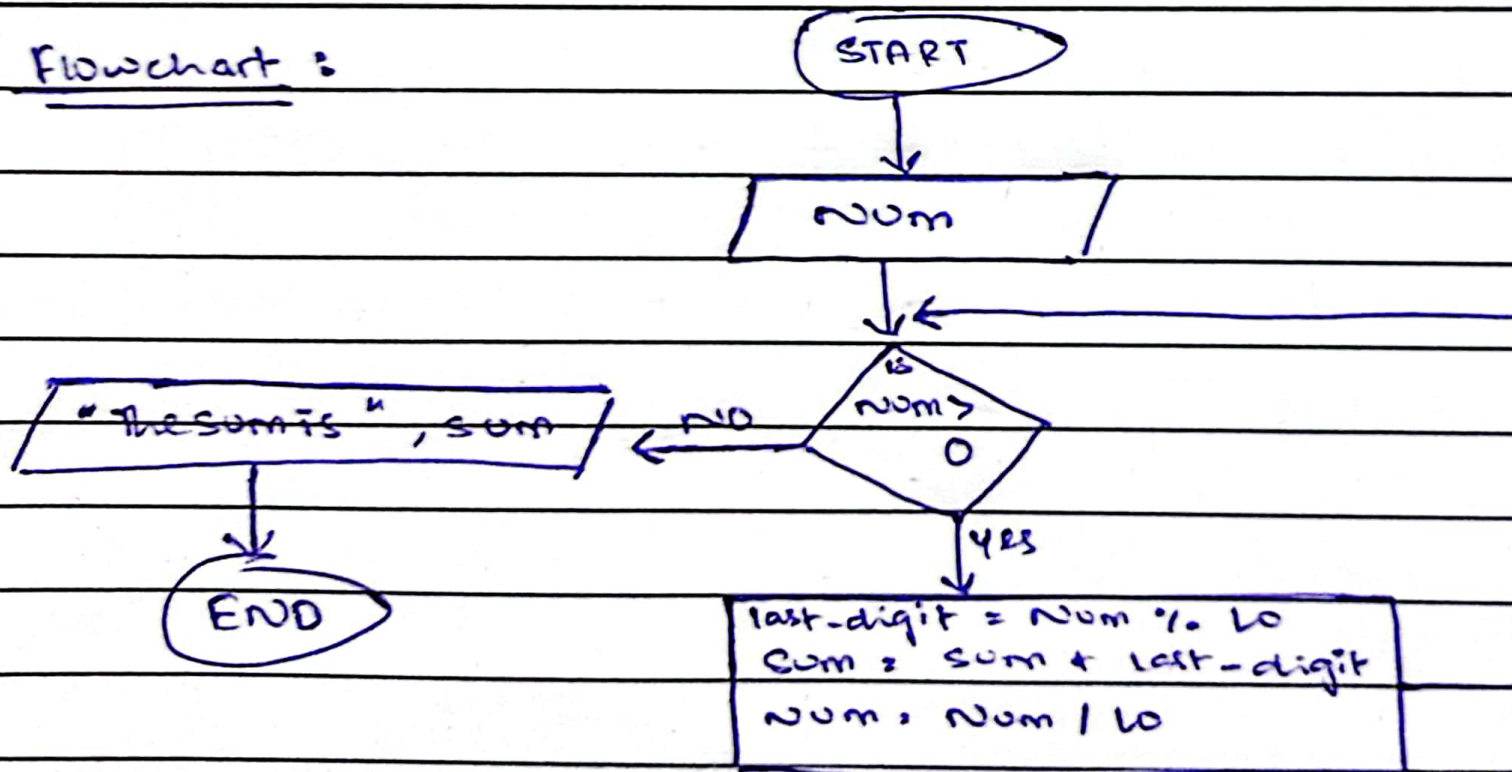 Flowchart :
START
Num
is
Num >
0
NO
"The sum is", sum
END
yes
last-digit = Num % 10
sum = sum + last-digit
Num = Num / 10